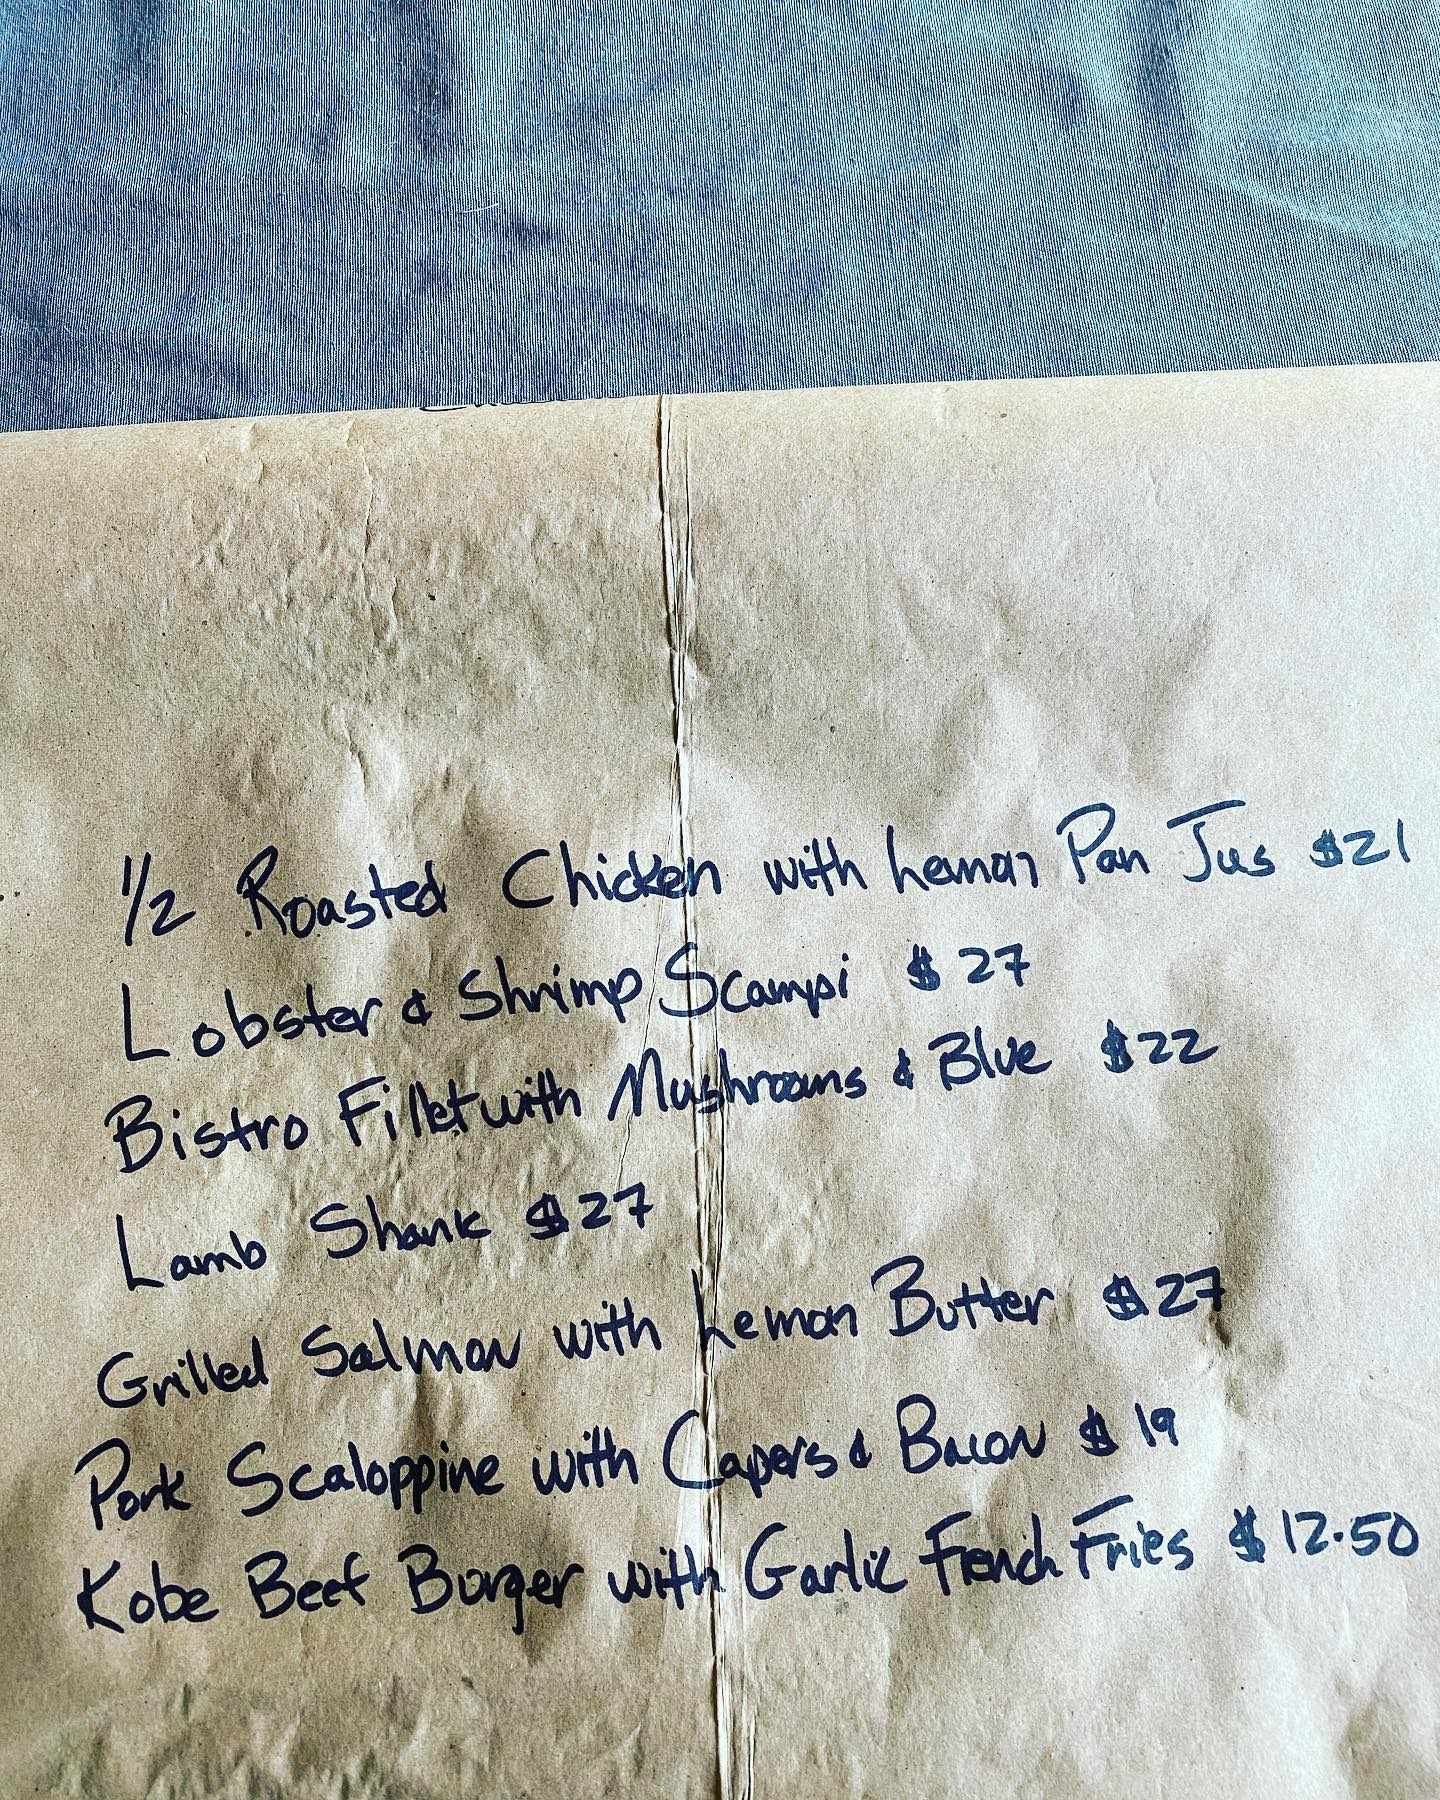 1/2 Roasted Chicken with Lemon Pan Jus $21
Lobster & Shrimp Scampi $27
Bistro Fillet with Mushrooms & Blue $22
Lamb Shank $27
Grilled Salmon with Lemon Butter $27
Pork Scaloppine with Capers & Bacon $19
Kobe Beef Burger with Garlic French Fries $12.50